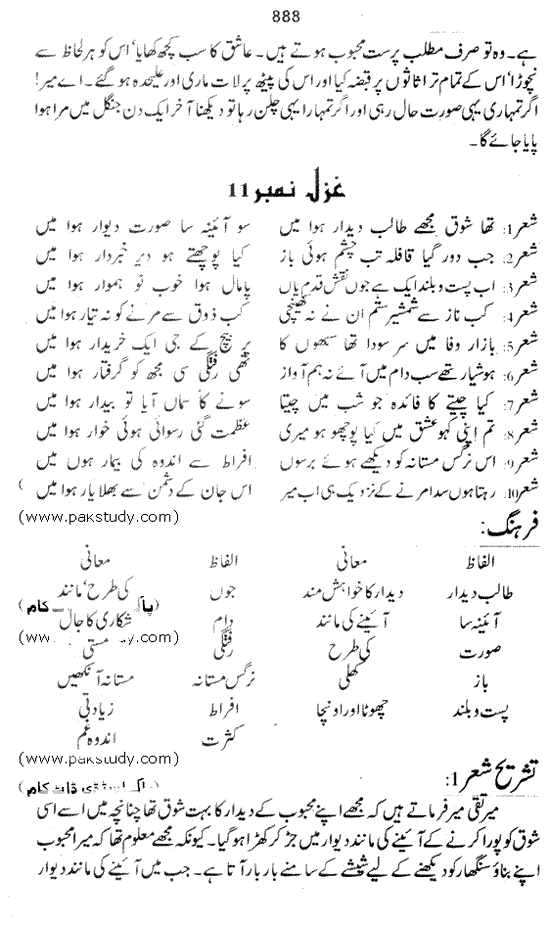 888
ہے۔ وہ تو صرف مطلب پرست محبوب ہوتے ہیں۔ عاشق کا سب کچھ کھایا‘ اس کو ہر لحاظ سے
نچوڑا‘ اس کے تمام تر اثاثوں پر قبضہ کیا اور اس کی پیٹھ پر لات ماری اور علیحدہ ہو گئے۔ اے میر!
اگر تمہاری یہی صورت حال رہی اور اگر تمہارا یہی چلن رہا تو دیکھنا آخر ایک دن جنگل میں مرا ہوا
پایا جائے گا۔
غزل نمبر 11
شعر 1: تھا شوق مجھے طالب دیدار ہوا میں سو آئینہ سا صورت دیوار ہوا میں
شعر 2: جب دور گیا قافلہ تب چشم ہوئی باز کیا پوچھتے ہو دیر خبردار ہوا میں
شعر 3: اب پست و بلند ایک ہے جوں نقش قدم یاں پامال ہوا خوب تو ہموار ہوا میں
شعر 4: کب ناز سے شمشیر ستم ان نے نہ کھینچی کب ذوق سے مرنے کو نہ تیار ہوا میں
شعر 5: بازار وفا میں سر سودا تھا سبھوں کا پر بیچ کے جی ایک خریدار ہوا میں
شعر 6: ہوشیار تھے سب دام میں آئے نہ ہم آواز تھی رفتگی سی مجھ کو گرفتار ہوا میں
شعر 7: کیا چیتے کا فائدہ جو شب میں چیتا سونے کا سماں آیا تو بیدار ہوا میں
شعر 8: تم اپنی کہو عشق میں کیا پوچھو ہو میری عظمت گئی رسوائی ہوئی خوار ہوا میں
شعر 9: اس نرگس مستانہ کو دیکھے ہوئے برسوں افراط سے اندوہ کی بیمار ہوں میں
شعر 10: رہتا ہوں سدا مرنے کے نزدیک ہی اب میر اس جان کے دشمن سے بھلا یار ہوا میں
(www.pakstudy.com)
فرہنگ:
الفاظ معانی الفاظ معانی
طالب دیدار دیدار کا خواہش مند جوں کی طرح‘ مانند
آئینہ سا آئینے کی مانند دام شکاری کا جال
صورت کی طرح رفتگی مستی
باز کھلی نرگس مستانہ مستانہ آنکھیں
پست و بلند چھوٹا اور اونچا افراط زیادتی
کثرت اندوہ غم
(www.pakstudy.com)
تشریح شعر 1:
میر تقی میر فرماتے ہیں کہ مجھے اپنے محبوب کے دیدار کا بہت شوق تھا چنانچہ میں اسے اسی
شوق کو پورا کرنے کے آئینے کی مانند دیوار میں جڑ کر کھڑا ہو گیا۔ کیونکہ مجھے معلوم تھا کہ میرا محبوب
اپنے بناؤ سنگھار کو دیکھنے کے لیے شیشے کے سامنے بار بار آتا ہے۔ جب میں آئینے کی مانند دیوار